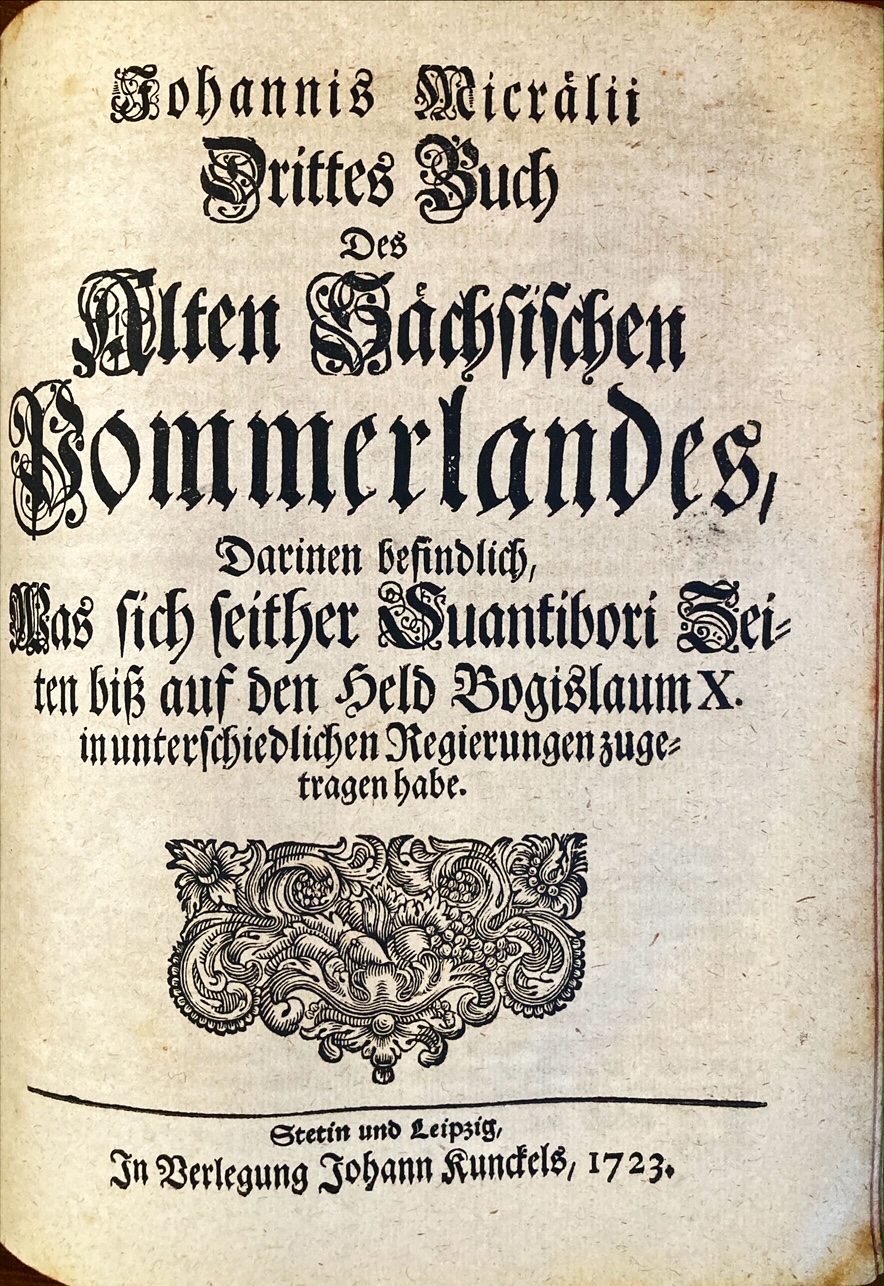 Johannis Micrälii
Drittes Buch
Des
Alten Sächsischen
Pommerlandes,
Darinen befindlich,
Was sich seither Suantibori Zei-
ten biß auf den Held Bogislaum X.
in unterschiedlichen Regierungen zuge-
tragen habe.
Stetin und Leipzig,
In Verlegung Johann Kunckels, 1723.